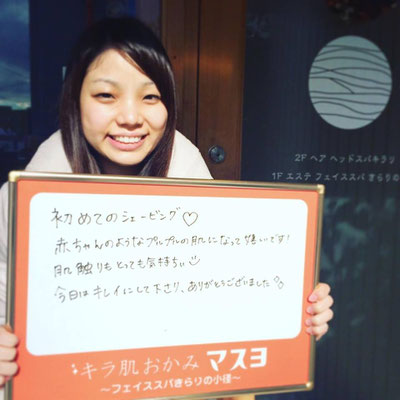 2F ヘア ヘッドスパキラリ
1F エステ フェイススパ きらりの
初めてのシェービング♡
赤ちゃんのようなプルプルの肌になって嬉しいです!
肌触りもとっても気持ちぃ
今日はキレイにして下さり、ありがとうございました
キラ肌おかみ マスヨ
〜フェイススパきらりの小径〜